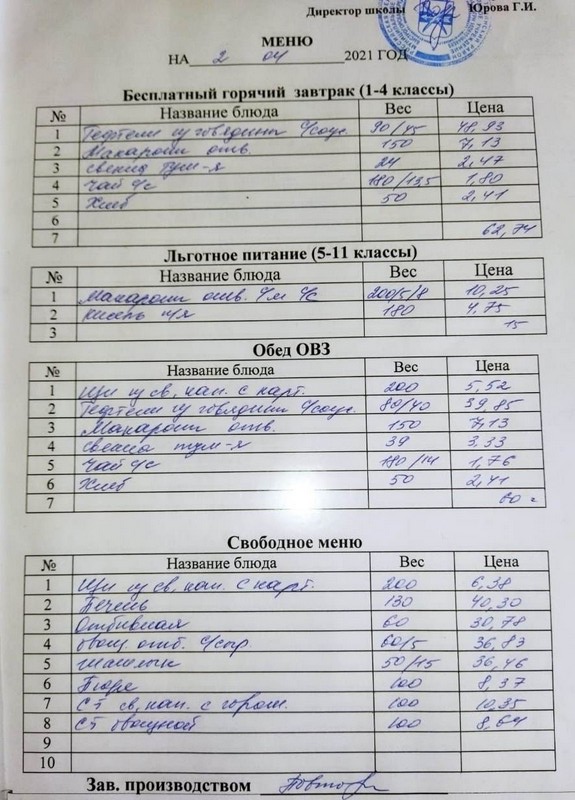 Директор школы Юрова Г.И.
МЕНЮ
НА 2 04 2021 ГОД
Бесплатный горячий завтрак (1-4 классы)
№ Название блюда Вес Цена
1 Тефтели из говядины с/соус. 90/45 48,93
2 Макароны отв. 150 7,13
3 свекла туш-я 24 2,47
4 Чай с/с 180/13,5 1,80
5 Хлеб 50 2,41
6
7 62,74
Льготное питание (5-11 классы)
№ Название блюда Вес Цена
1 Макароны отв. с/м с/с 200/5/8 10,25
2 кисель п/я 180 4,75
3 15
Обед ОВЗ
№ Название блюда Вес Цена
1 Щи из св. кап. с карт. 200 5,52
2 Тефтели из говядины с/соус. 80/40 39,85
3 Макароны отв. 150 7,13
4 Свекла туш-я 39 3,33
5 Чай с/с 180/14 1,76
6 Хлеб 50 2,41
7 60
Свободное меню
№ Название блюда Вес Цена
1 Щи из св. кап. с карт. 200 6,38
2 Печень 130 40,30
3 Отбивная 60 30,78
4 овощ. отб. с/сыр 60/5 36,83
5 шашлык 50/45 36,46
6 Пюре 100 8,37
7 СТ св. кап. с горош. 100 10,35
8 СТ овощной 100 8,64
9
10
Зав. производством